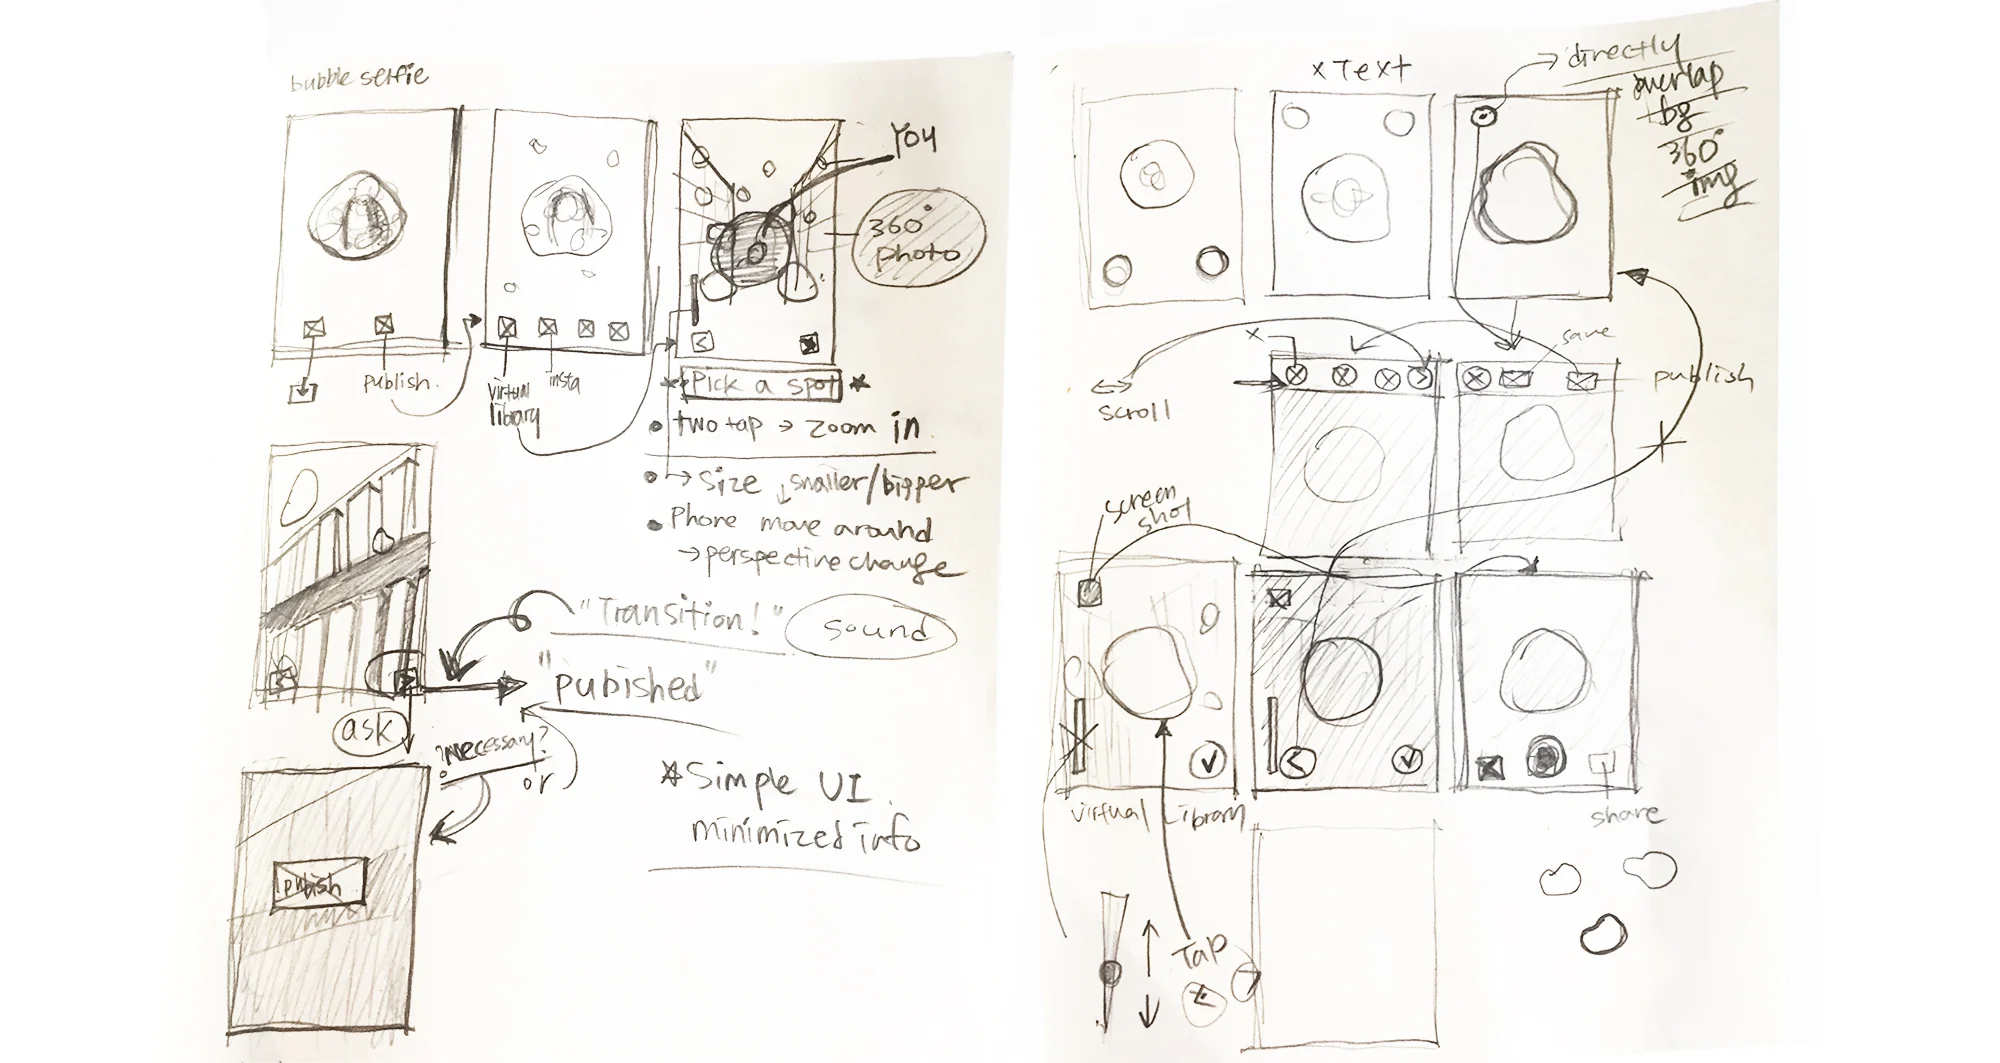 bubble selfie
You
360°
photo
publish.
virtual
library
insta
*Pick a spot*
two tap → zoom in
→ Size smaller/bigger
Phone move around
→ perspective change
"Transition!"
sound
"pubished"
ask
?necessary?
or
publish
*Simple UI.
minimized info
x Text
→ directly
overlap
bg
360°
img
x
save
scroll
publish
screen
shot
virtual Library
share
Tap